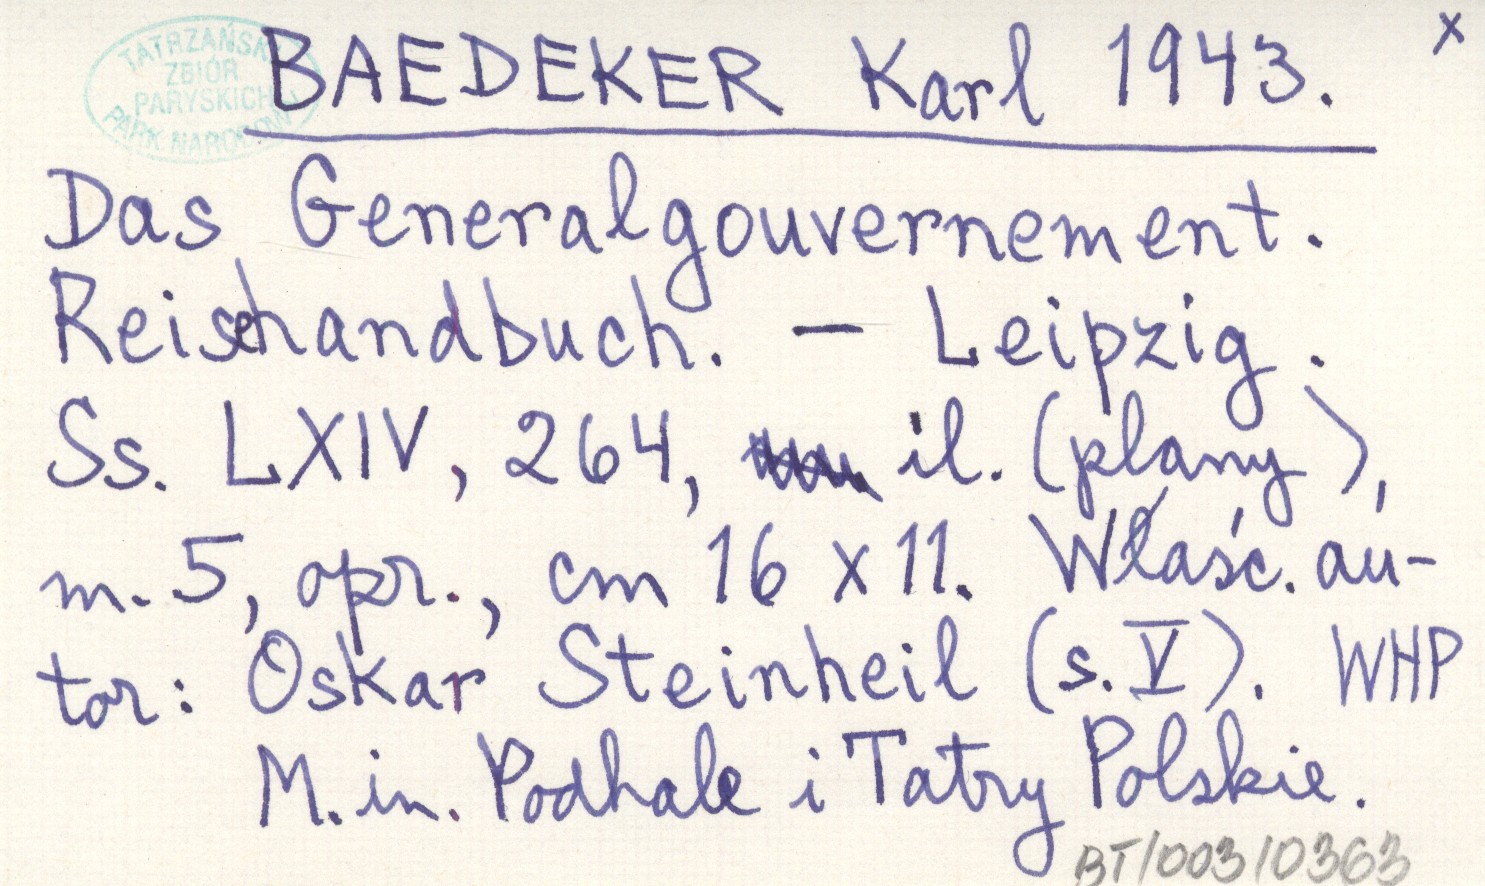 TATRZAŃSKI
ZBIÓR
PARYSKICH
PARK NARODOWY
BAEDEKER Karl 1943. x
Das Generalgouvernement.
Reisehandbuch. — Leipzig.
Ss. LXIV, 264, il. (plany),
m. 5, opr., cm 16 x 11. Właśc. au-
tor: Oskar Steinheil (s. V). WHP
M. in. Podhale i Tatry Polskie.
BT/003/0363